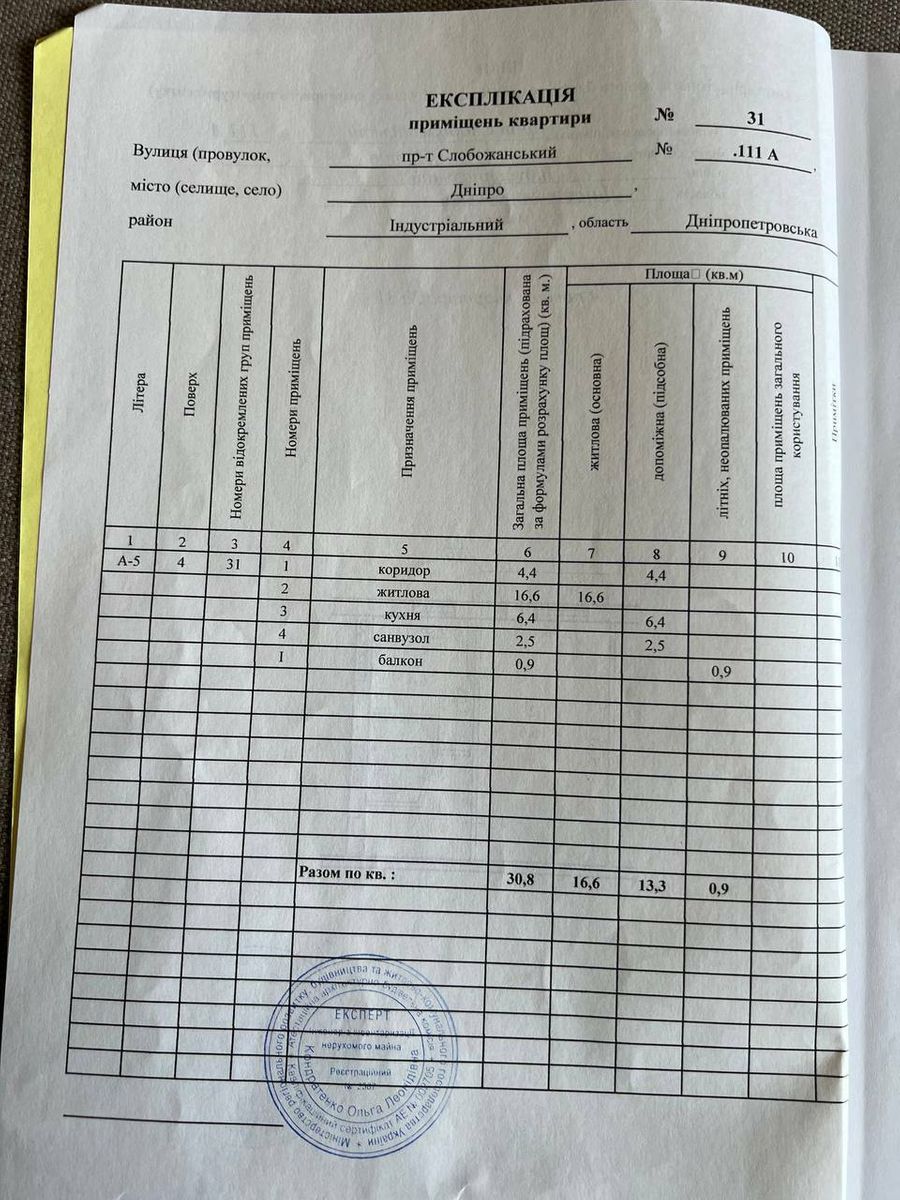 ЕКСПЛІКАЦІЯ
приміщень квартири № 31
Вулиця (провулок, пр-т Слобожанський № .111 А ,
місто (селище, село) Дніпро ,
район Індустріальний , область Дніпропетровська
Літера
Поверх
Номери відокремлених груп приміщень
Номери приміщень
Призначення приміщень
Загальна площа приміщень (підрахована
за формулами розрахунку площ) (кв. м.)
Площа□ (кв.м)
житлова (основна)
допоміжна (підсобна)
літніх, неопалюваних приміщень
площа приміщень загального
користування
Примітки
1 2 3 4 5 6 7 8 9 10
А-5 4 31 1 коридор 4,4 4,4
2 житлова 16,6 16,6
3 кухня 6,4 6,4
4 санвузол 2,5 2,5
I балкон 0,9 0,9
Разом по кв. : 30,8 16,6 13,3 0,9
Міністерство регіонального розвитку, будівництва та житлово-комунального господарства України *
Кваліфікаційний сертифікат АЕ №
ЕКСПЕРТ
нерухомого майна
Реєстраційний
Кондратенко Ольга Леонідівна